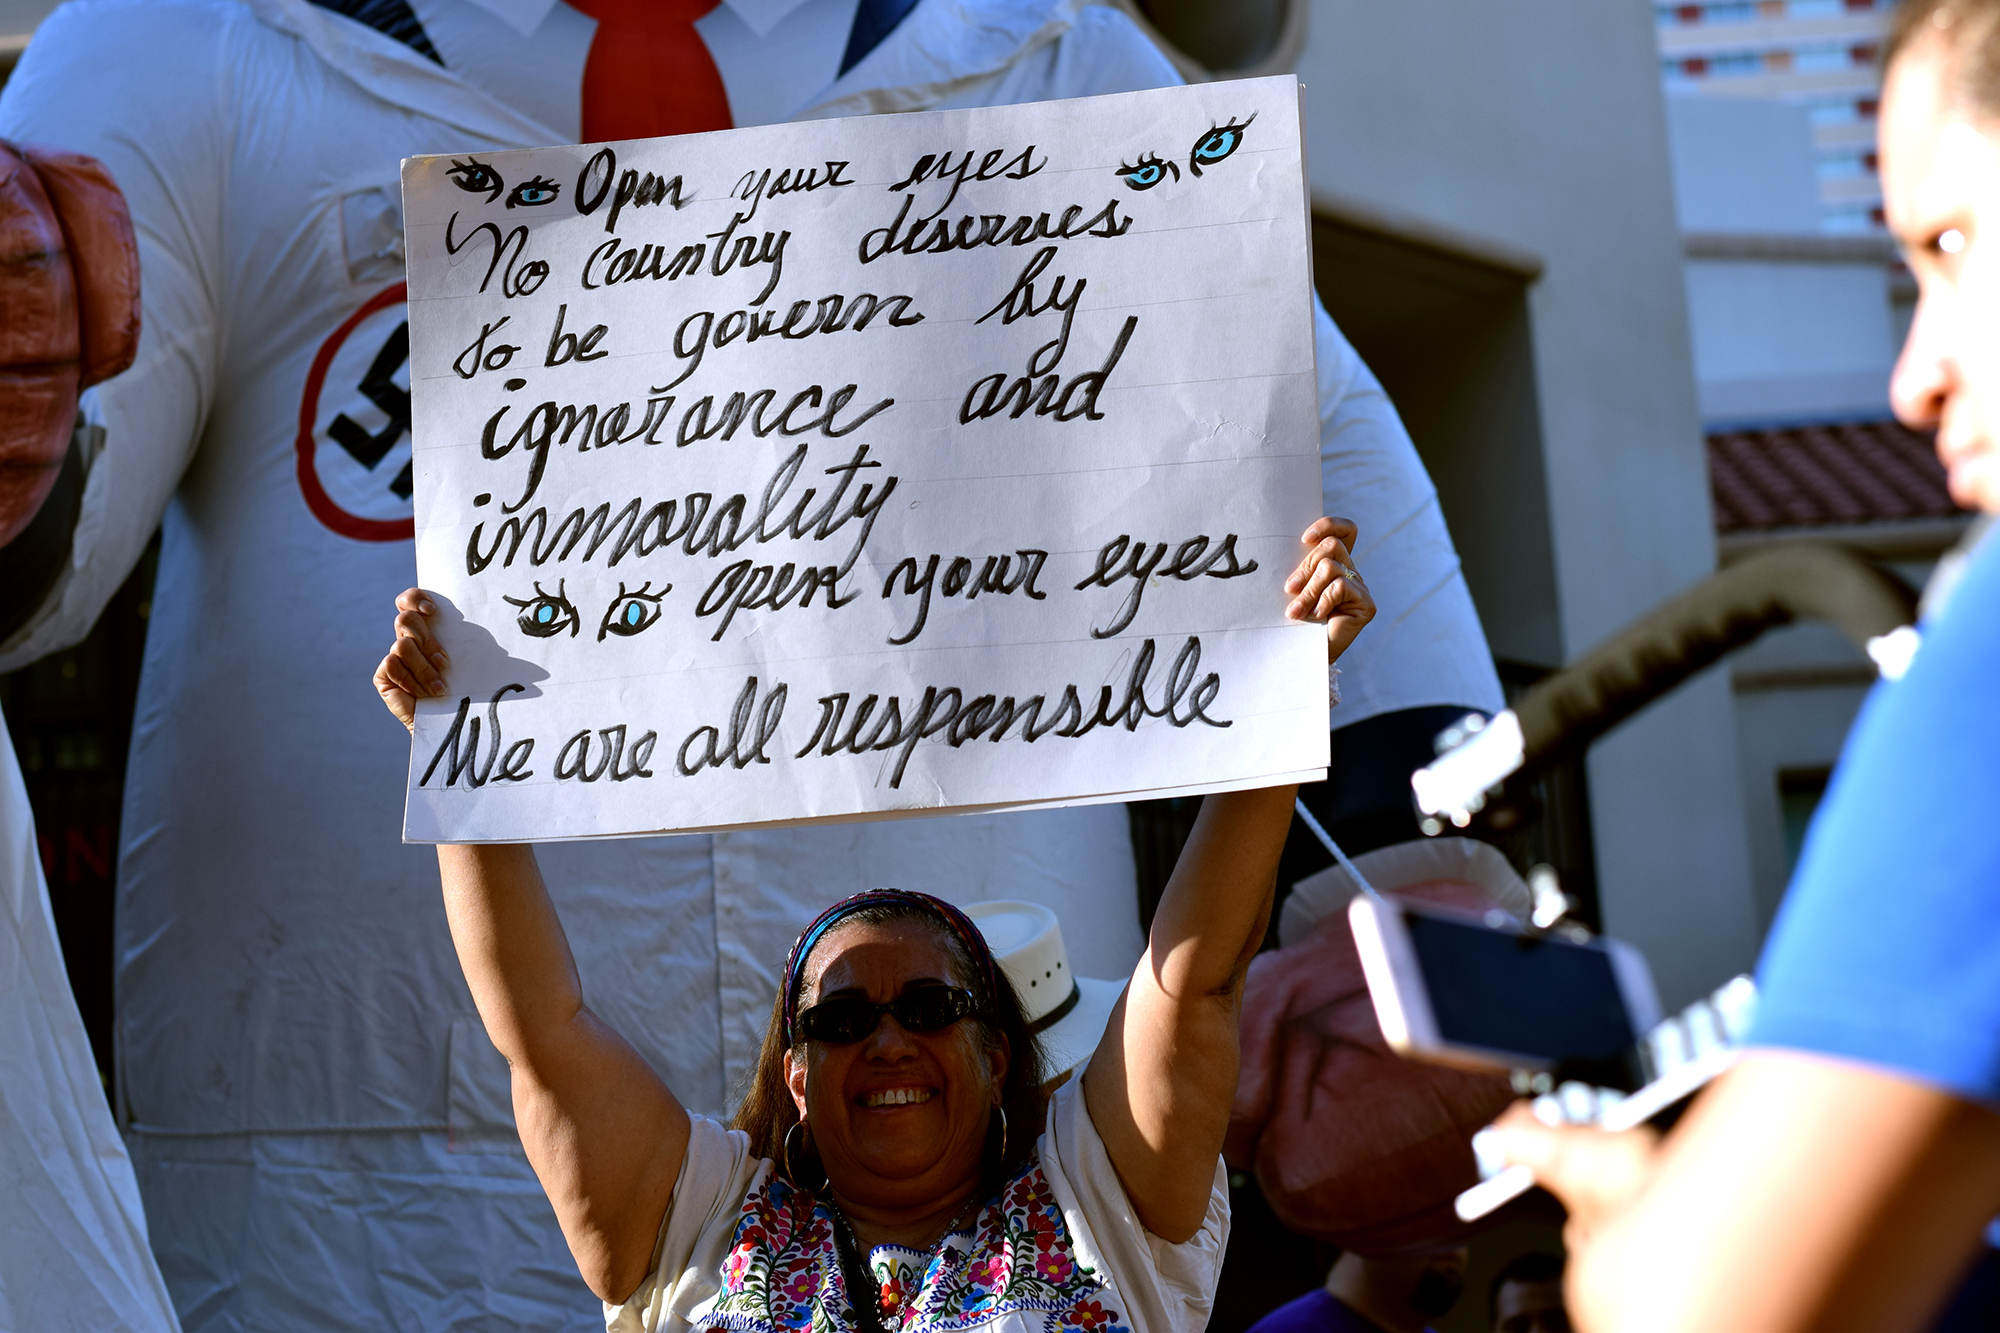 Open your eyes
No country deserves
to be govern by
ignorance and
inmorality
open your eyes
We are all responsible